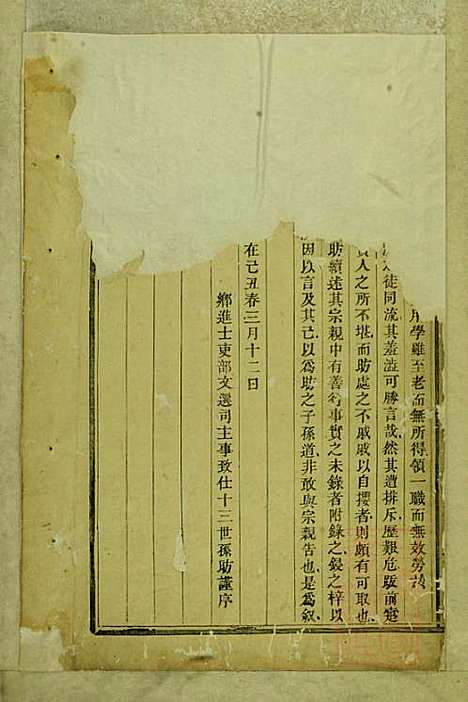 學雖至老而無所得領一職而無效勞
徒同流其羞澁可勝言哉然其遭排斥歷艱危販前
人之所不堪而昉處之不戚戚以自攖者則頗有可取也
昉續述其宗親中有善行事實之未錄者附錄之鋟之梓以
因以言及其已以爲昉之子孫道非敢與宗親告也是爲叙
在己丑春三月十二日
鄉進士吏部文選司主事致仕十三世孫昉謹序